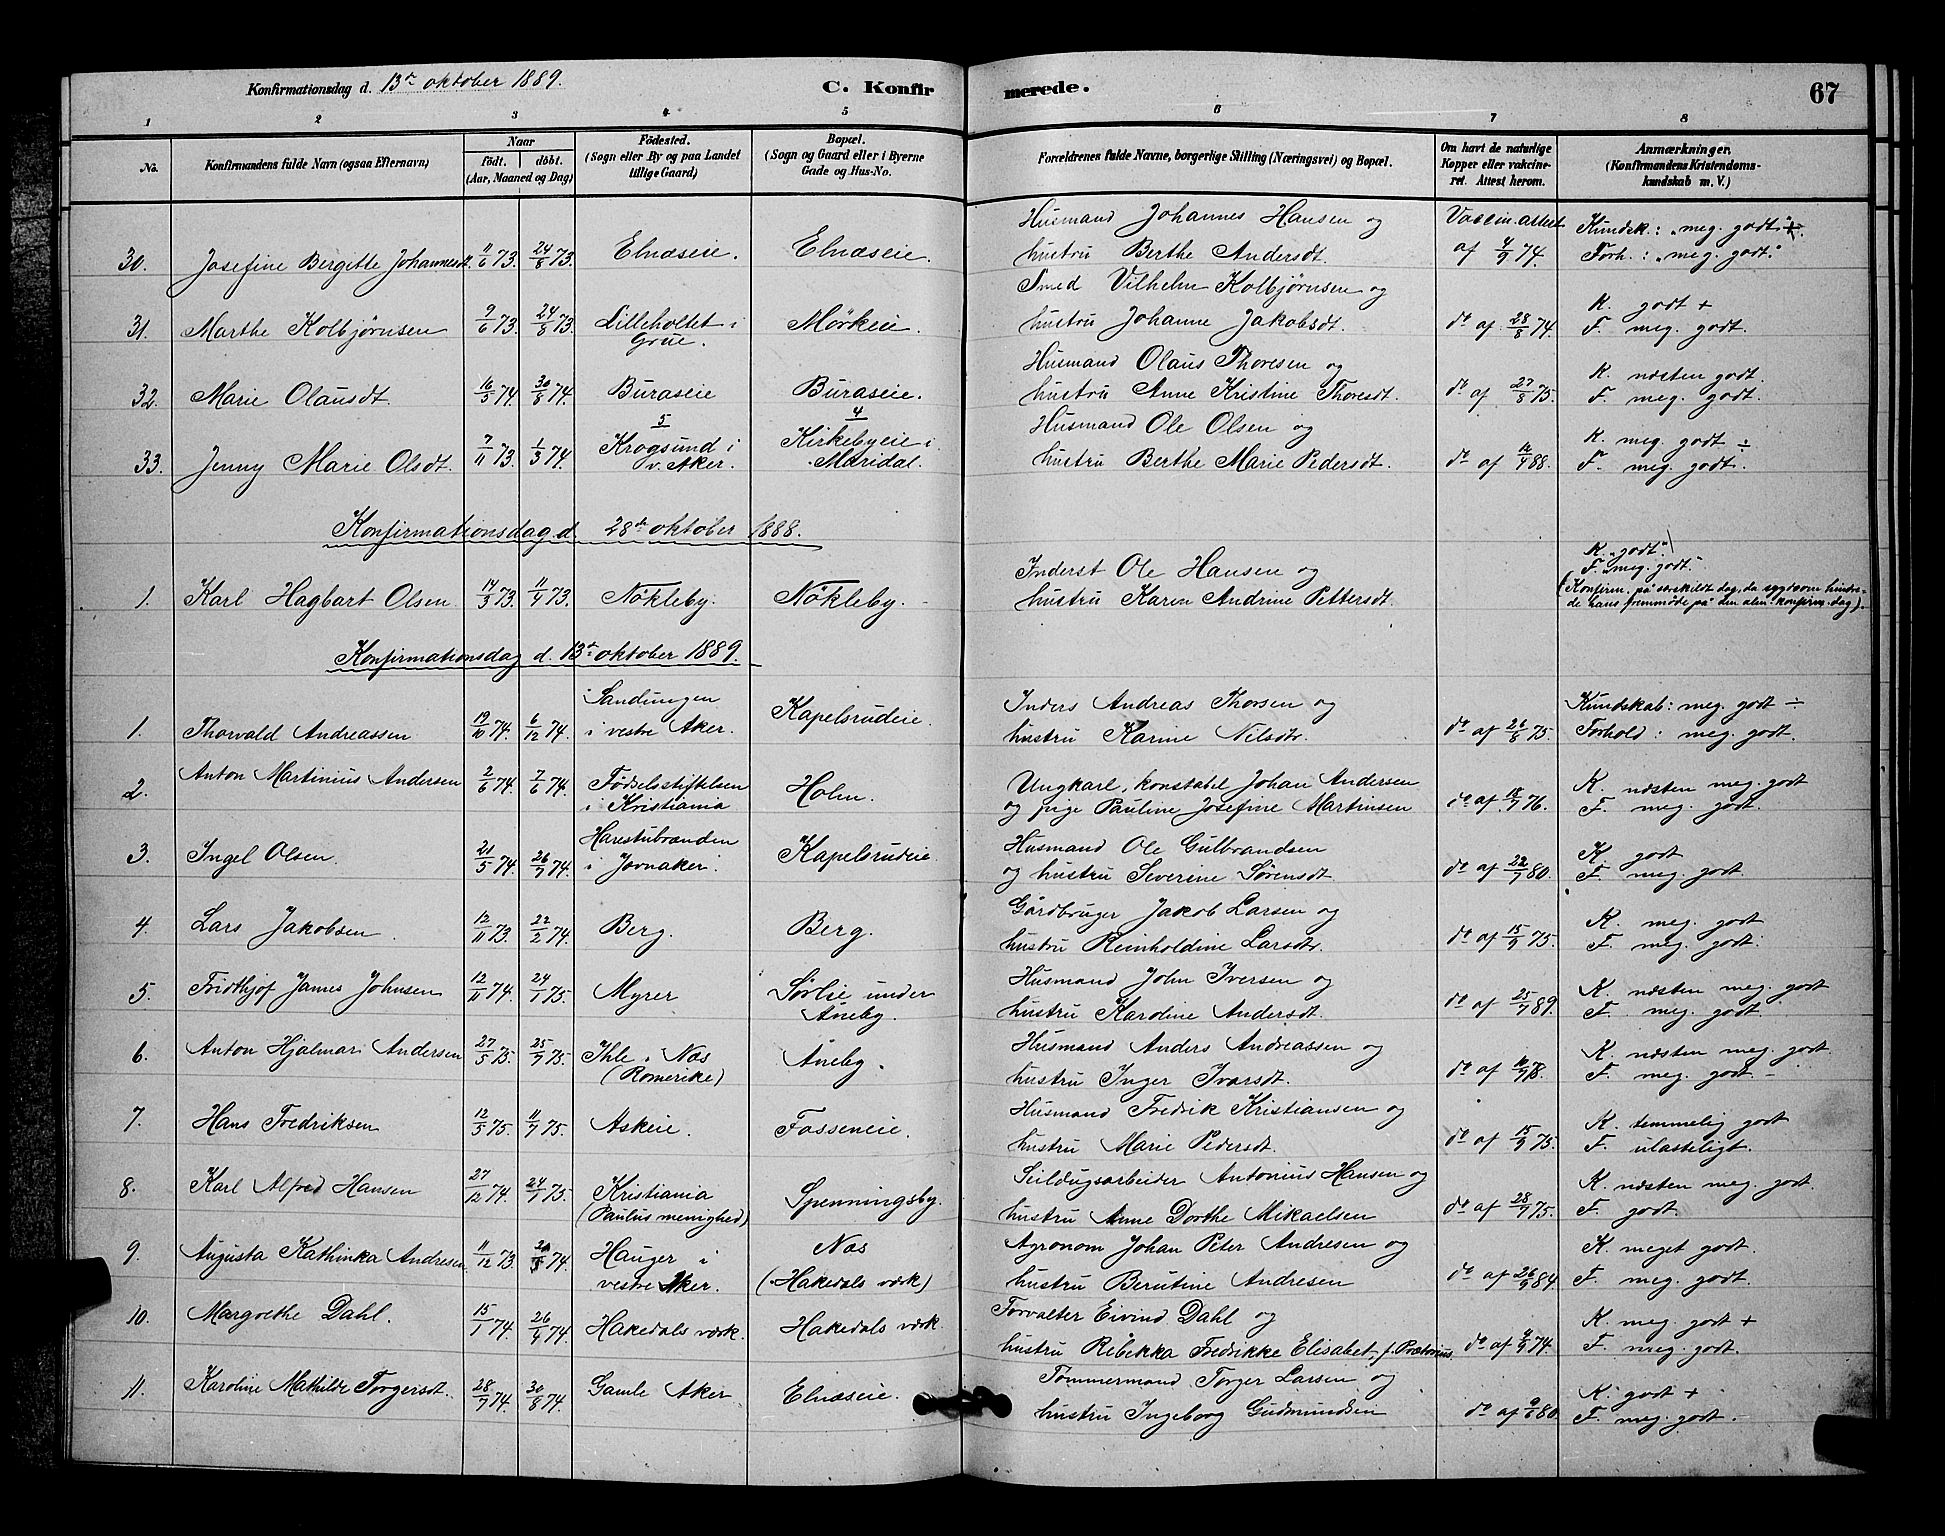 Konfirmationsdag d. 13de oktober 1889.
C. Konfirmerede.
67
1 2 3 4 5 6 7 8
No.
Konfirmandens fulde Navn (ogsaa Efternavn)
Naar
født. døbt.
(Aar, Maaned og Dag)
Fødested.
(Sogn eller By og paa Landet
tillige Gaard)
Bopæl.
(Sogn og Gaard eller i Byerne
Gade og Hus-No.
Forældrenes fulde Navne, borgerlige Stilling (Næringsvei) og Bopæl.
Om havt de naturlige
Kopper eller vakcine-
ret. Attest herom.
Anmærkninger.
(Konfirmandens Kristendoms-
kundskab m. V.)
30. Josefine Bergitte Johannesdt. 11/6 73. 24/8 73. Elnæseie. Elnæseie.
Husmand Johannes Hansen og
hustru Berthe Andersdt.
Vaccin. attest
af 4/9 74.
Kundsk.: "meg. godt" +.
Forh.: "meg. godt."
31. Marthe Kolbjørnsen 9/6 73. 24/8 73. Lilleholtet i
Grue.
Mørkeie.
Smed Vilhelm Kolbjørnsen og
hustru Johanne Jakobsdt.
do af 28/8 74.
K. godt +
F. meg. godt.
32. Marie Olausdt. 16/5 74. 30/8 74. Buraseie Buraseie.
Husmand Olaus Thoresen og
hustru Anne Kristine Thoresdt.
do af 27/8 75.
K. næsten godt.
F. meg. godt.
33. Jenny Marie Olsdt. 7/11 73. 1/3 74. 5
Krogsund i
v. Aker.
4
Kirkebyeie i
Maridal.
Husmand Ole Olsen og
hustru Berthe Marie Pedersdt.
do af 12/4 88.
K. meg. godt ÷
F. meg. godt.
Konfirmationsdag d. 28de oktober 1888.
1. Karl Hagbart Olsen. 14/3 73. 11/4 73. Nökleby. Nökleby.
Inderst Ole Hansen og
hustru Karen Andrine Pettersdt.
K. "godt."
F. "meg. godt."
(Konfirm. på særskildt dag, da sygdom hindre-
de hans fremmöde på den alm. konfirm. dag).
Konfirmationsdag d. 13de oktober 1889.
1. Thorvald Andreassen 19/10 74. 6/12 74. Sandungen
i vestre Aker.
Kapelsrudeie.
Inders Andreas Thorsen og
hustru Karine Nilsdtr.
do af 26/8 75.
Kundskab: meg. godt ÷
Forhold: meg. godt.
2. Anton Martinius Andersen 2/6 74. 7/6 74. Fødselsstiftelsen
i Kristiania
Holm.
Ungkarl, konstabel Johan Andersen
og pige Pauline Josefine Martinsen
do af 18/7 76.
K. næsten meg. godt
F. meg. godt.
3. Ingel Olsen. 21/5 74. 26/7 74. Harestubranden
i Jevnaker.
Kapelsrudeie
Husmand Ole Gulbrandsen
og hustru Severine Sørensdt.
do af 22/7 80.
K. godt
F. meg. godt.
4. Lars Jakobsen. 12/11 73. 22/2 74. Berg. Berg.
Gårdbruger Jakob Larsen og
hustru Reinholdine Larsdtr.
do af 15/9 75.
K. meg. godt
F. meg. godt.
5. Fridthjof James Johnsen 12/11 74. 24/1 75. Myrer Sørlie under
Åneby.
Husmand John Iversen og
hustru Karoline Andersdt.
do af 25/7 89.
K. næsten meg. godt
F. meg. godt.
6. Anton Hjalmar Andersen 27/5 75. 25/7 75. Ihle i Næs
(Romerike)
Åneby.
Husmand Anders Andreassen og
hustru Inger Ivarsdt.
do af 10/9 78.
K. næsten meg. godt.
F. meg. godt –
7. Hans Fredriksen 12/5 75. 11/7 75. Askeie. Fosseneie.
Husmand Fredrik Kristiansen og
hustru Marie Pedersdt.
do af 15/9 75.
K. temmelig godt
F. ulasteligt.
8. Karl Alfred Hansen 27/12 74. 24/1 75. Kristiania
(Paulus menighed)
Spenningsby.
Seildugsarbeider Antonius Hansen og
hustru Anne Dorthe Mikaelsen
do af 28/9 75.
K. næsten meg. godt.
F. godt.
9. Augusta Kathinka Andresen 11/12 73. 74. Hauger i
vestre Aker.
Næs
(Hakedals værk)
Agronom Johan Peter Andresen og
hustru Berutine Andresen
do af 26/9 84.
K. meget godt.
F. meg. godt.
10. Margrethe Dahl. 15/1 74. 26/4 74. Hakedals værk. Hakedals værk
Forvalter Eivind Dahl og
hustru Rebekka Fredrikke Elisabet f. Prætorius
do af 4/9 74.
K. meg. godt +
F. meg. godt.
11. Karoline Mathilde Torgersdt. 28/7 74. 30/8 74. Gamle Aker Elnæseie.
Tømmermand Torger Larsen og
hustru Ingeborg Gudmundsen
do af 9/6 80.
K. godt +
F. meg. godt.